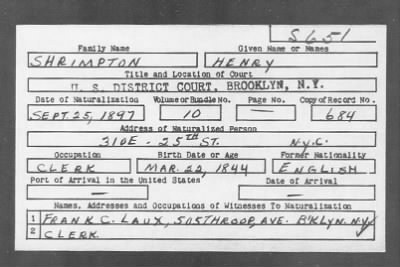 S651
Family Name Given Name or Names
SHRIMPTON HENRY
Title and Location of Court
U. S. DISTRICT COURT, BROOKLYN, N.Y.
Date of Naturalization Volume or Bundle No. Page No. Copy of Record No.
SEPT. 25, 1897 10 — 684
Address of Naturalized Person
310 E - 25TH ST. N.Y.C.
Occupation Birth Date or Age Former Nationality
CLERK MAR. 22, 1844 ENGLISH
Port of Arrival in the United States Date of Arrival
— —
Names, Addresses and Occupations of Witnesses To Naturalization
1 FRANK C. LAUX, 505 THROOP, AVE. B'KLYN. N.Y.
2 CLERK